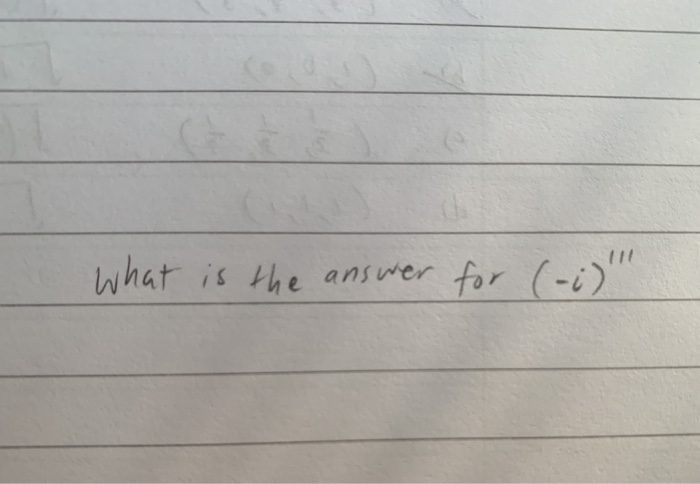 What is the answer for (-i)^111